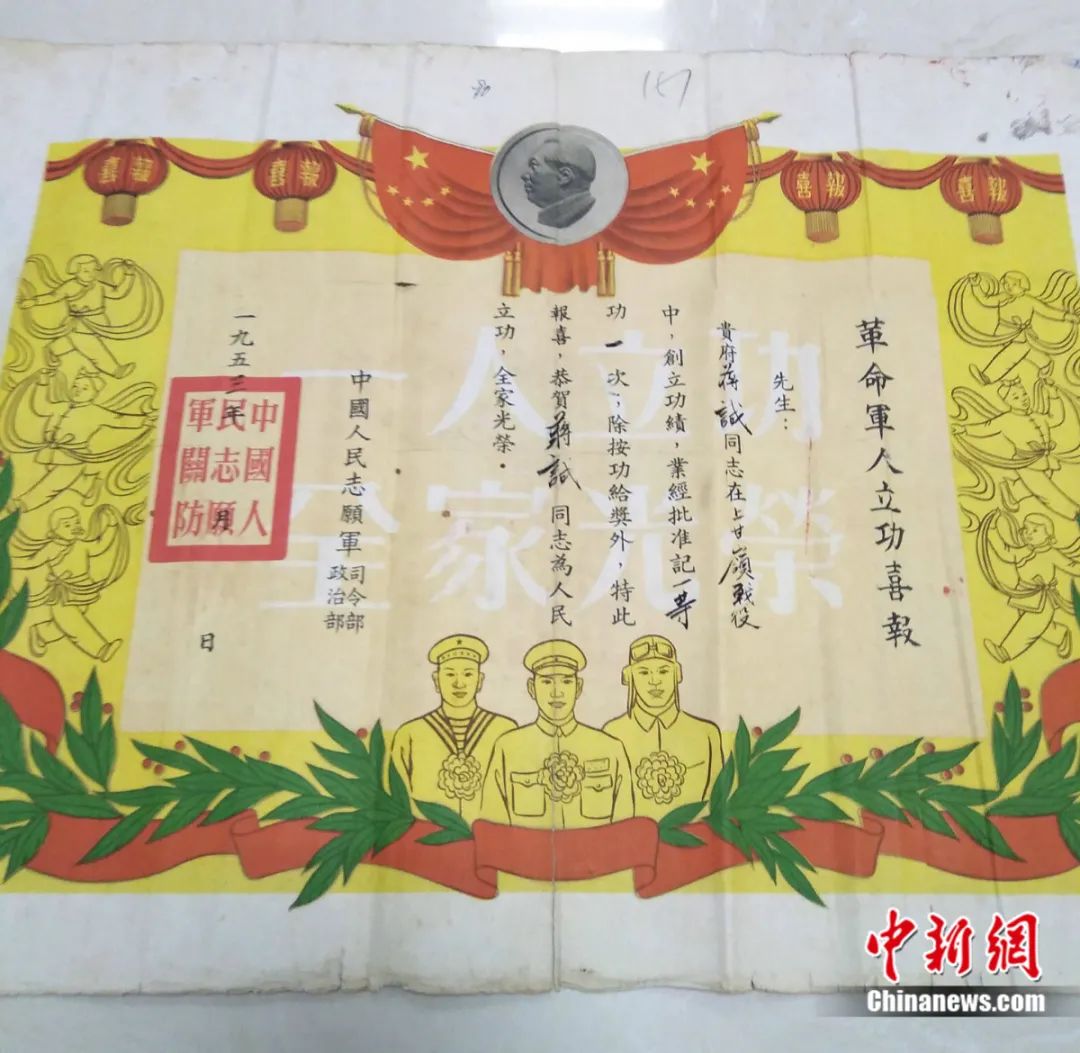 喜報
喜報
喜報
喜報
革命軍人立功喜報
先生：
貴府蔣誠同志在上甘嶺戰役
中，創立功績，業經批准記一等
功一次；除按功給獎外，特此
報喜，恭賀蔣誠同志為人民
立功，全家光榮．
中國人民志願軍司令部
政治部
一九五三年月日
中國人
民志願
軍關防
一人立功
全家光榮
中新網
Chinanews.com